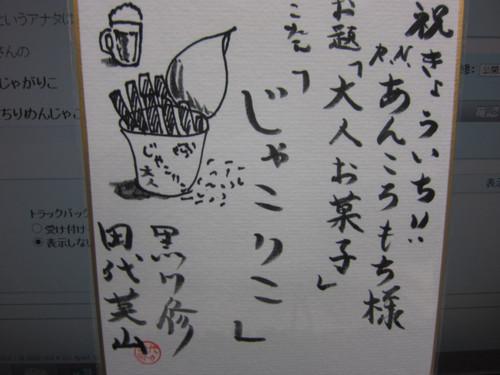 祝きょういち!!
R.N.あんころもち様
お題「大人お菓子」
こたえ「
じゃこりこ」
じゃこりこ
大人
黒川修
田代英山
というアナタは
さんの
じゃがりこ
ちりめんじゃこ
トラックバック
受け付け
表示しない
公開
表示